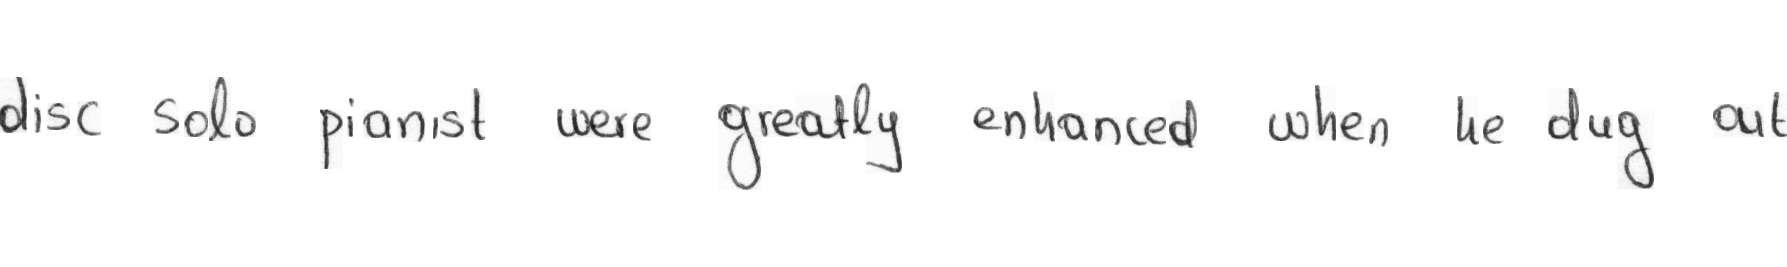 disc solo pianist were greatly enhanced when he dug out